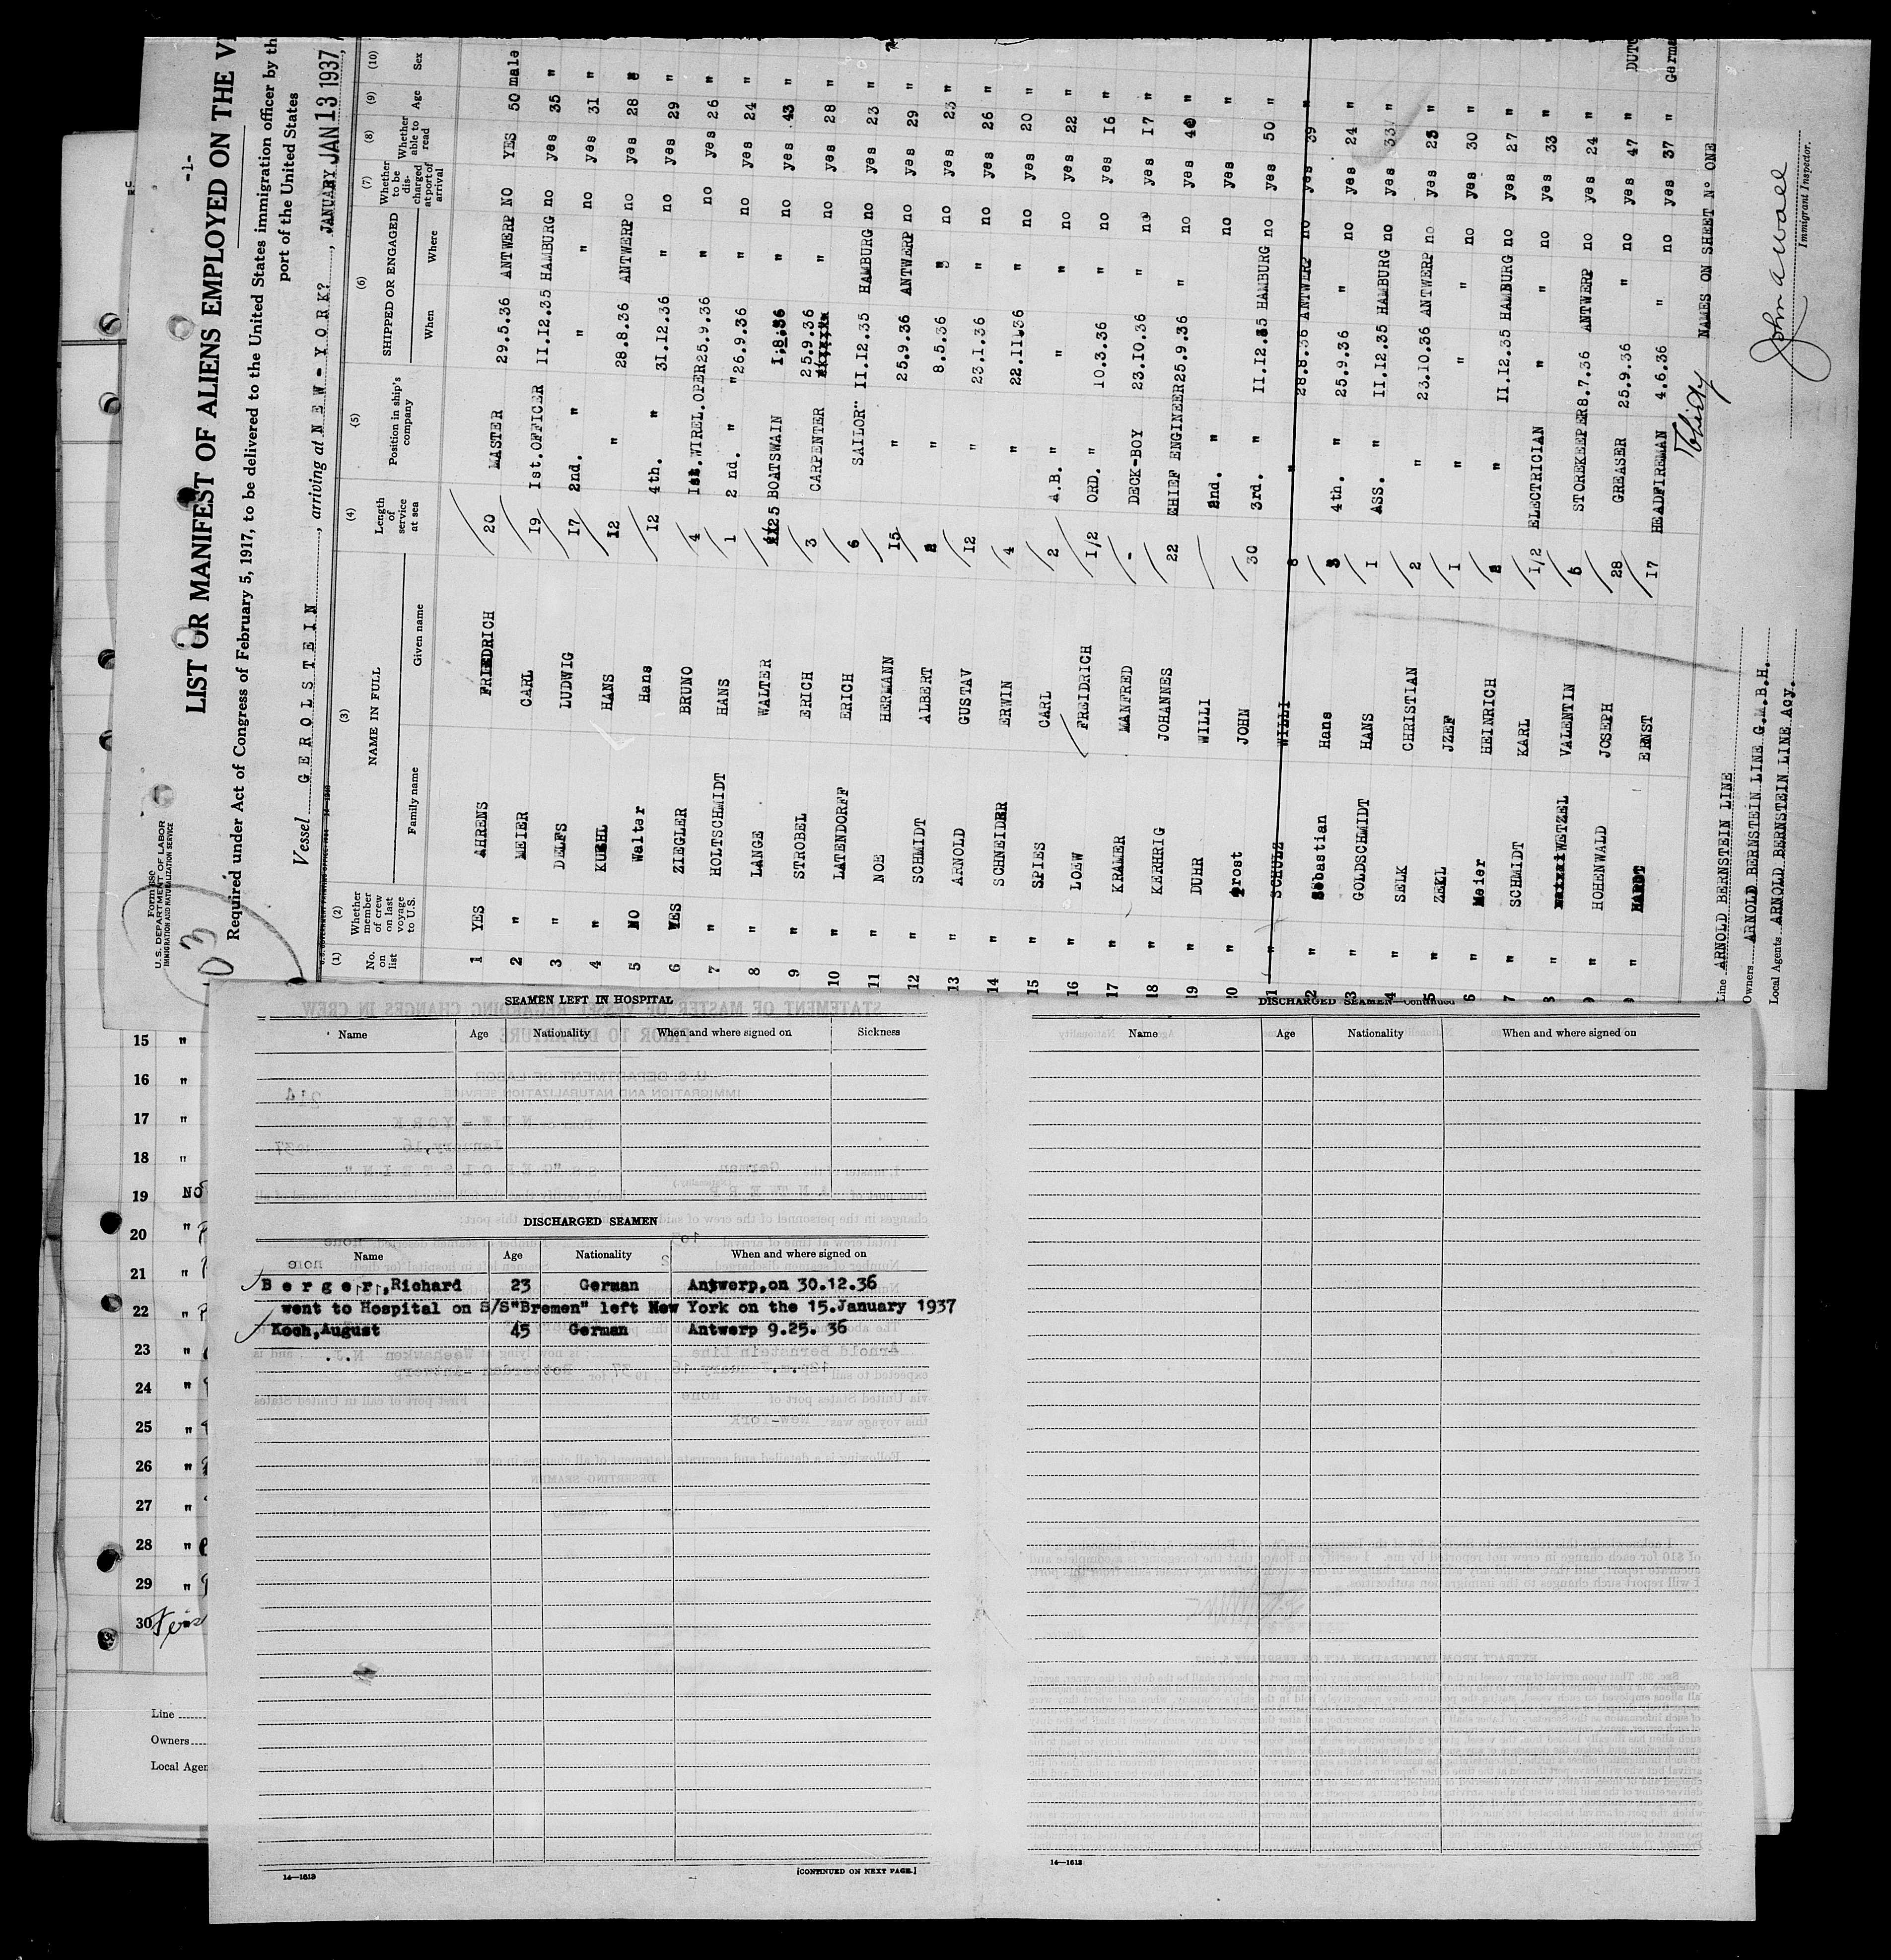 -1-
Form 689
U. S. DEPARTMENT OF LABOR
IMMIGRATION AND NATURALIZATION SERVICE
LIST OR MANIFEST OF ALIENS EMPLOYED ON THE
Required under Act of Congress of February 5, 1917, to be delivered to the United States immigration officer by th
port of the United States
Vessel GEROLSTEIN, arriving at NEW-YORK?, JANUARY JAN 13 1937,
(1) (2) (3) (4) (5) (6) (7) (8) (9) (10)
No. on list Whether member of crew on last voyage to U.S. NAME IN FULL Length of service at sea Position in ship's company SHIPPED OR ENGAGED Whether to be discharged at port of arrival Whether able to read Age Sex
Family name Given name When Where
1 YES AHRENS FRIEDRICH 20 MASTER 29.5.36 ANTWERP NO YES 50 male
2 " MEIER CARL 19 Ist.OFFICER 11.12.35 HAMBURG no yes 35 "
3 " DELFS LUDWIG 17 2nd. " " " no yes 31 "
4 " KUEHL HANS 12 " 28.8.36 ANTWERP no yes 28 "
5 NO Walter Hans 12 4th. " 31.12.36 " no yes 29 "
6 YES ZIEGLER BRUNO 4 Ist.WIREL.OPER 25.9.36 " no yes 26 "
7 " HOLTSCHMIDT HANS 1 2 nd. " " 26.9.36 " no yes 24 "
8 " LANGE WALTER 25 BOATSWAIN 1.8.36 " no yes 43 "
9 " STROBEL ERICH 3 CARPENTER 25.9.36 " no yes 28 "
10 " LATENDORFF ERICH 6 SAILOR" 11.12.35 HAMBURG no yes 23 "
11 " NOE HERMANN 15 " 25.9.36 ANTWERP no yes 29 "
12 " SCHMIDT ALBERT 2 " 8.5.36 " no yes 23 "
13 " ARNOLD GUSTAV 12 " 23.1.36 " no yes 26 "
14 " SCHNEIDER ERWIN 4 " 22.11.36 " no yes 20 "
15 " SPIES CARL 2 A.B. " " " no yes 22 "
16 " LOEW FREIDRICH 1/2 ORD. " 10.3.36 " no yes 16 "
17 " KRAMER MANFRED - DECK-BOY 23.10.36 " no yes 17 "
18 " KERHRIG JOHANNES 22 CHIEF ENGINEER 25.9.36 " no yes 40 "
19 " DUHR WILLI 2nd. " no yes "
20 " Prost JOHN 30 3rd. " 11.12.35 HAMBURG no yes 50 "
1 " SCHULZ WILLI 8 " 28.8.36 ANTWERP no yes 39 "
2 " Sebastian Hans 3 4th. " 25.9.36 " no yes 24 "
3 " GOLDSCHMIDT HANS 1 ASS. " 11.12.35 HAMBURG no yes 33 "
4 " SELK CHRISTIAN 2 " 23.10.36 ANTWERP no yes 23 "
5 " ZEKL JZEF 1 " " " no yes 30 "
6 " Meier HEINRICH 2 " 11.12.35 HAMBURG no yes 27 "
7 " SCHMIDT KARL 1/2 ELECTRICIAN " " no yes 33 "
8 " WETZEL VALENTIN 5 STOREKEEPER 8.7.36 ANTWERP no yes 24 "
9 " HOHENWALD JOSEPH 28 GREASER 25.9.36 " no yes 47 " DUTC
" HARDT ERNST 17 HEADFIREMAN 4.6.36 " no yes 37 " Germa
NAMES ON SHEET No ONE
Line ARNOLD BERNSTEIN LINE
Owners ARNOLD BERNSTEIN LINE G.M.B.H.
Local Agents ARNOLD BERNSTEIN LINE Acy.
John A Wall
Immigrant Inspector.
15 "
16 "
17 "
18 "
19 NO
20 "
21 "
22 "
23 "
24 "
25 "
26 "
27 "
28 "
29 "
30
Line
Owners
Local Agen
SEAMEN LEFT IN HOSPITAL
Name Age Nationality When and where signed on Sickness
DISCHARGED SEAMEN
Name Age Nationality When and where signed on
Berger,Richard 23 German Antwerp,on 30.12.36
went to Hospital on S/S"Bremen" left New York on the 15.January 1937
Koch,August 45 German Antwerp 9.25. 36
14—1613
[CONTINUED ON NEXT PAGE.]
DISCHARGED SEAMEN—Continued
Name Age Nationality When and where signed on
14—1613